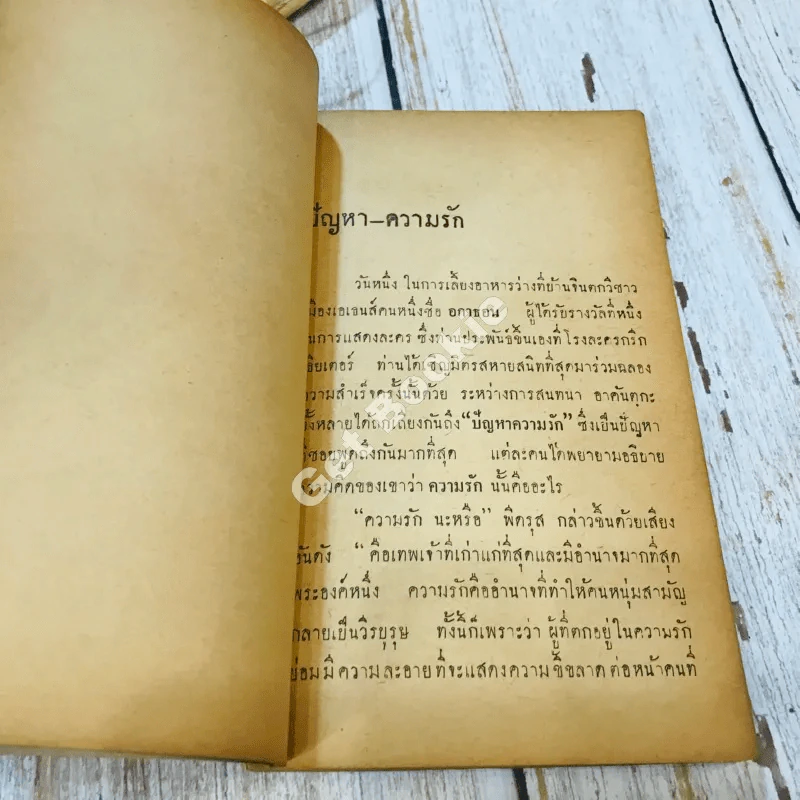 ปัญหา–ความรัก
วันหนึ่ง ในการเลี้ยงอาหารว่างที่บ้านจินตกวีชาว
เมืองเอเธนส์คนหนึ่งชื่อ อกาธอน ผู้ได้รับรางวัลที่หนึ่ง
ในการแสดงละคร ซึ่งท่านประพันธ์ขึ้นเองที่โรงละครกรีก
ธิยเตอร์ ท่านได้เชิญมิตรสหายสนิทที่สุดมาร่วมฉลอง
ความสำเร็จครั้งนั้นด้วย ระหว่างการสนทนา อาคันตุกะ
ทั้งหลายได้ถกเถียงกันถึง “ปัญหาความรัก” ซึ่งเป็นปัญหา
ที่ชอบพูดถึงกันมากที่สุด แต่ละคนได้พยายามอธิบาย
ความคิดของเขาว่า ความรัก นั้นคืออะไร
“ความรัก นะหรือ” พิดรุส กล่าวขึ้นด้วยเสียง
อันดัง “คือเทพเจ้าที่เก่าแก่ที่สุดและมีอำนาจมากที่สุด
พระองค์หนึ่ง ความรักคืออำนาจที่ทำให้คนหนุ่มสามัญ
กลายเป็นวีรบุรุษ ทั้งนี้ก็เพราะว่า ผู้ที่ตกอยู่ในความรัก
ย่อมมีความละอายที่จะแสดงความขี้ขลาดต่อหน้าคนที่
Get Bookie